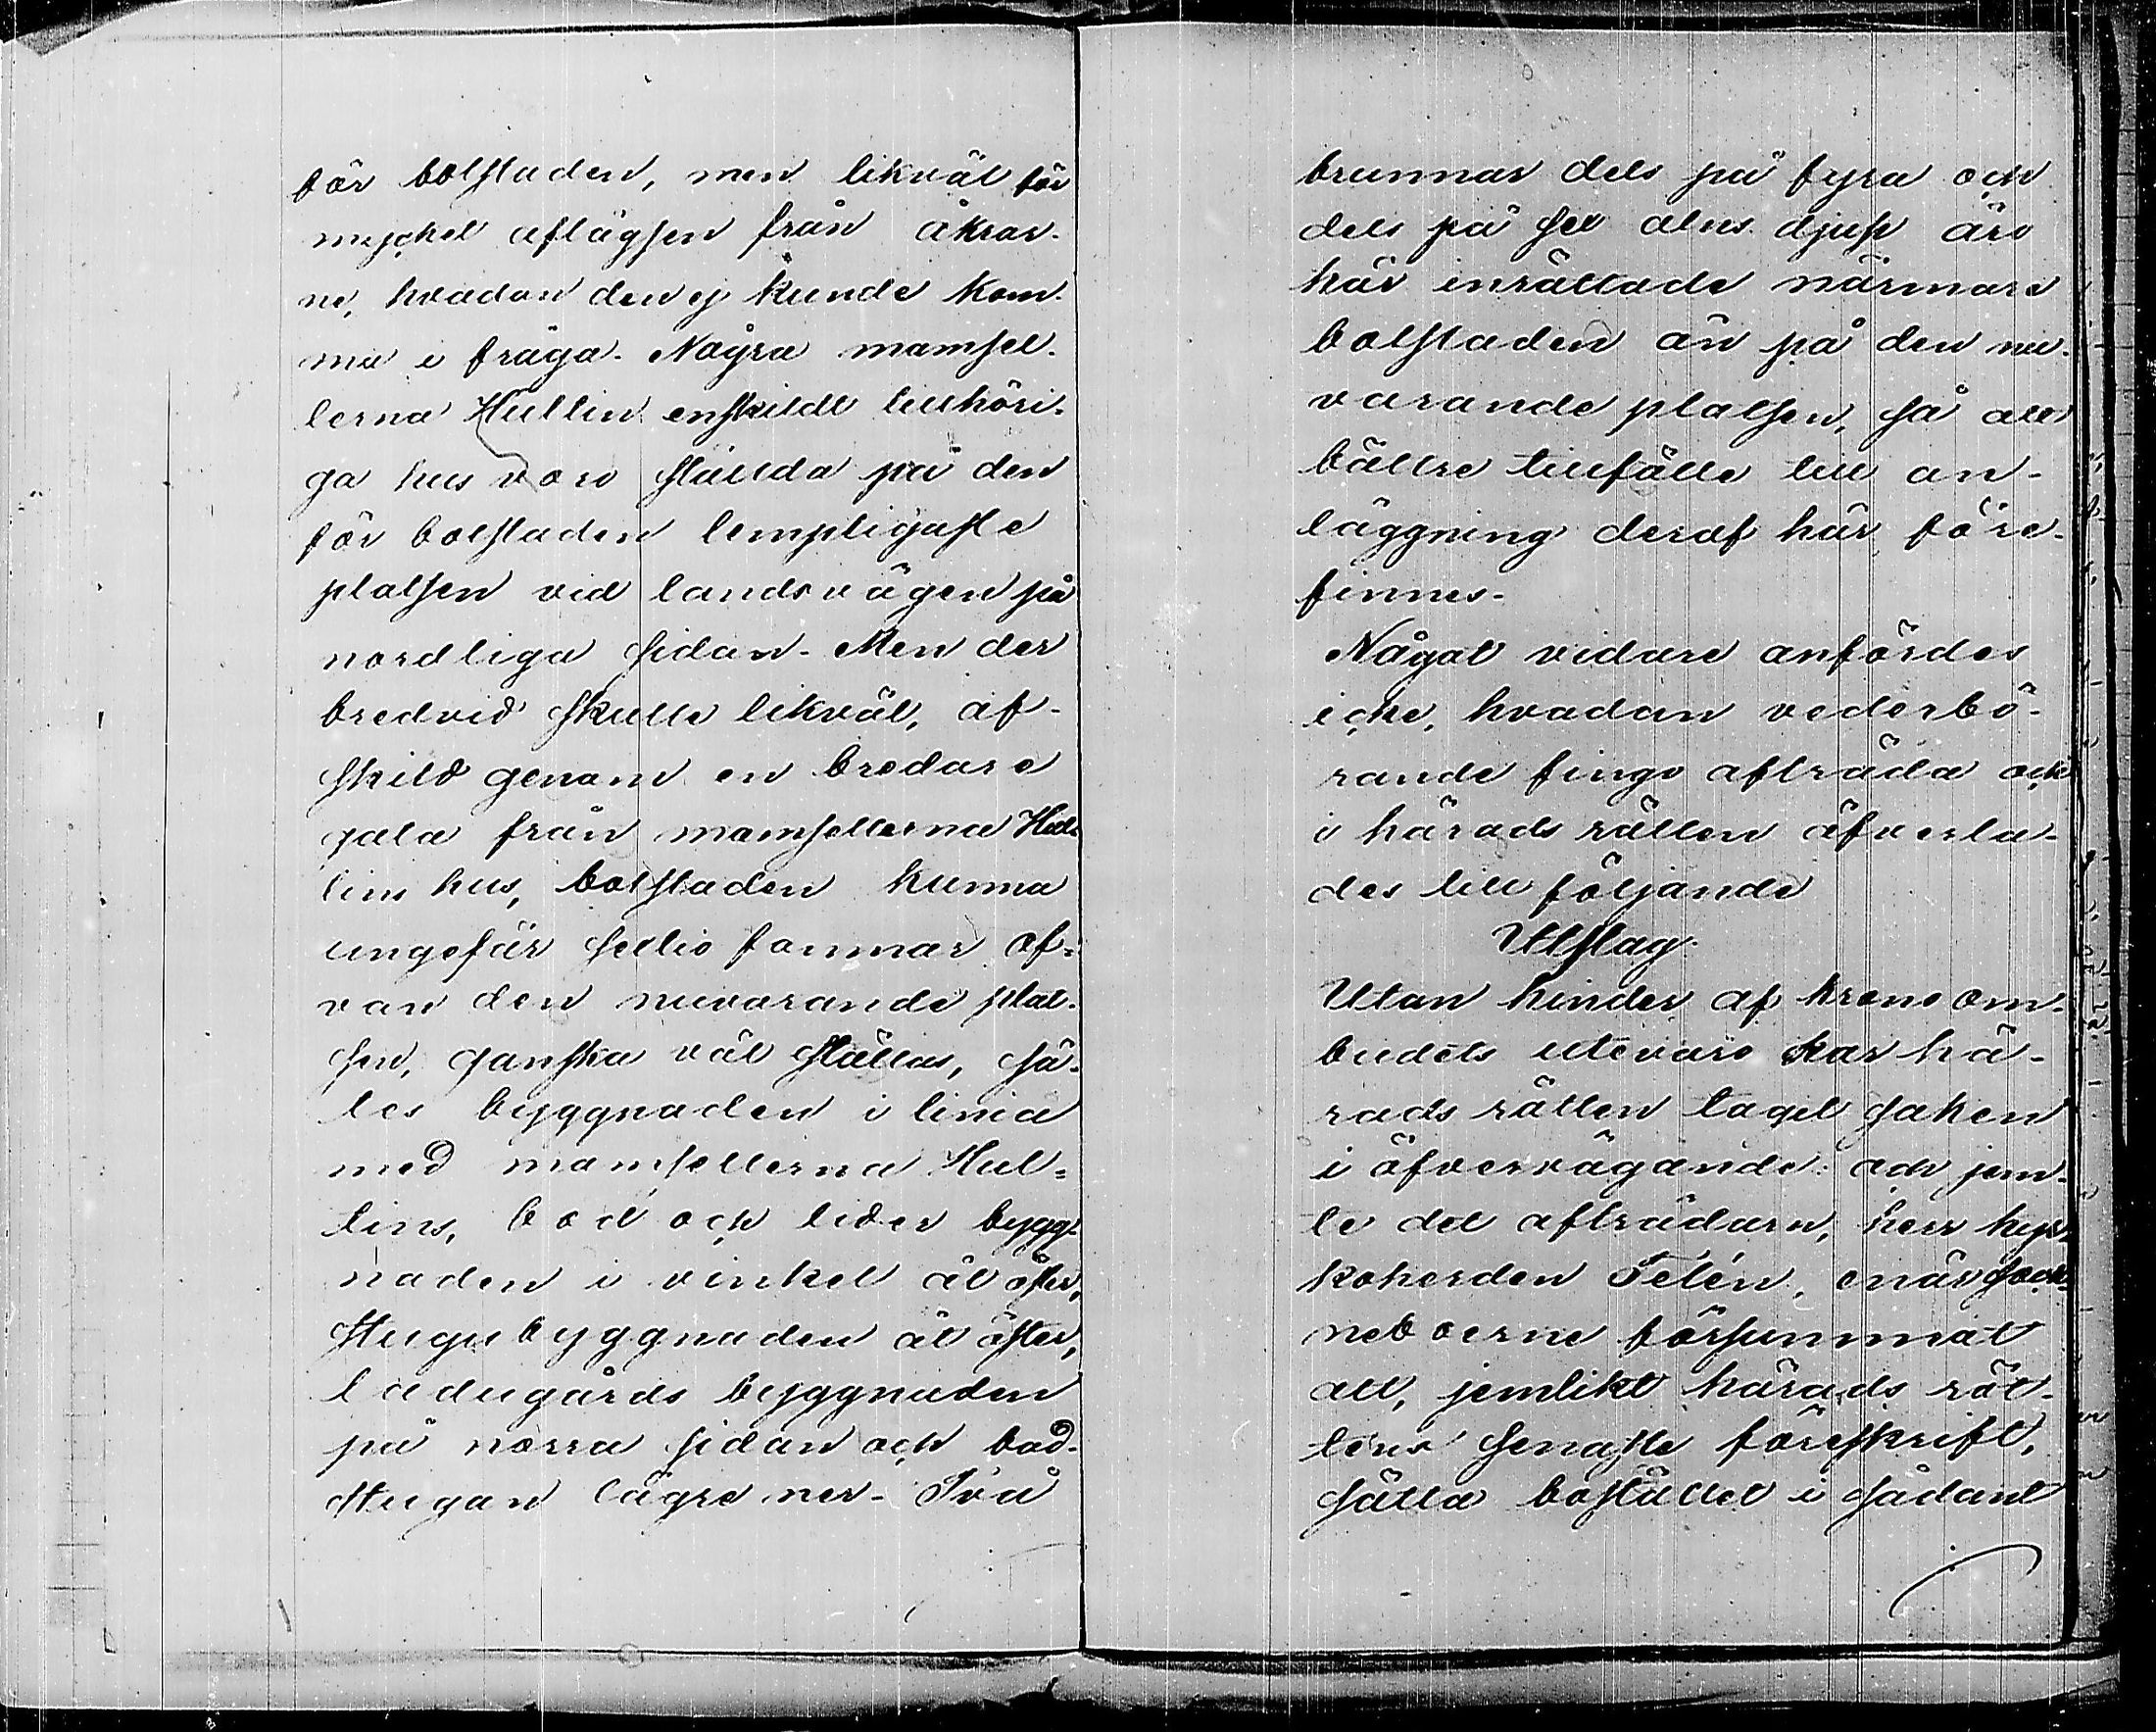 för bolstaden, men likväl för
myckel aflägsen från åkrar-
ne, hvadan den ej kunde kom-
ma i fråga. Några mamsel-
lerna Hullin enskildt tillhöri-
ga hus voro ställda på den
för bolstaden lempligaste
platsen vid landsvägen på
nordliga sidan. Men der
bredvid skulle likväl, af-
skild genom en bredare
gata från mamsellerna Hul-
lins hus, bolstaden kunna
ungefär sextio famnar of-
van den nuvarande plat-
sen, ganska väl ställas, så-
les byggnaden i linia
med mamsellerna Hul-
lins, bod och lider bygg-
naden i vinkel åt öster,
Stugubyggnaden åt öster,
ladugårds byggnaden
på norra sidan och bad-
stugan lägre ner. Två
brunnar dels på fyra och
dels på sex alns djup äro
här inrättade närmare
bolstaden än på den nu-
varande platsen, så att
bättre tillfälle till an-
läggning deraf här före-
finnes.
Något vidare anfördes
icke, hvadan vederbö-
rande fingo afträda och
i härads rätten öfverla-
des till följande
Utslag.
Utan hinder af krono om-
budets utevaro har hä-
rads rätten tagit saken
i öfvervägande: och jem-
te det afträdarn, herr kyr-
koherden Telén, enär sock-
neboerne försummat
att, jemlikt härads rät-
tens senaste föreskrift,
sätta bostället i sådant